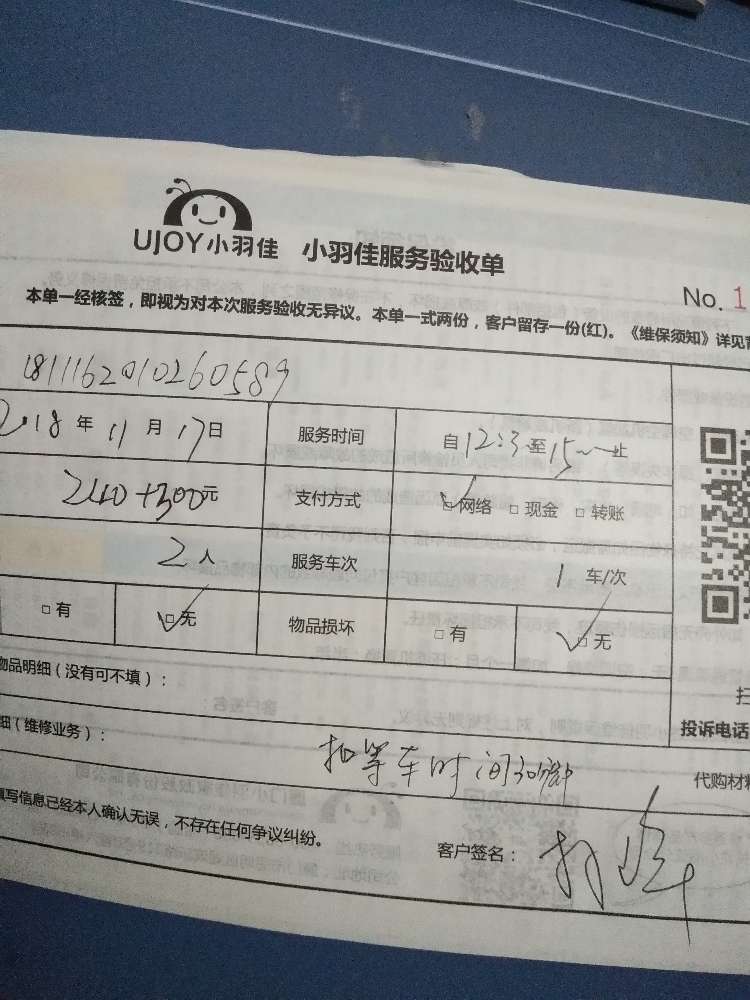 UJOY小羽佳 小羽佳服务验收单
No. 1
本单一经核签，即视为对本次服务验收无异议。本单一式两份，客户留存一份(红)。《维保须知》详见
1811162010260589
2018年11月17日 服务时间 自12:3至15~止
240+300元 支付方式 ☑网络 □现金 □转账
2人 服务车次 1车/次
□有 ☑无 物品损坏 □有 ☑无
物品明细（没有可不填）：
投诉电话
细（维修业务）： 代购材料
扣等车时间30分钟
填写信息已经本人确认无误，不存在任何争议纠纷。 客户签名：